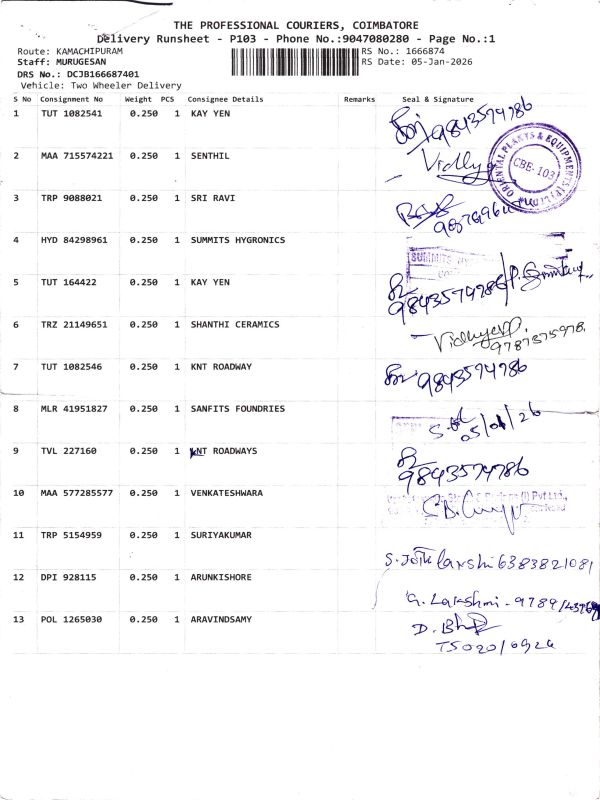 THE PROFESSIONAL COURIERS, COIMBATORE
Delivery Runsheet - P103 - Phone No.:9047080280 - Page No.:1
Route: KAMACHIPURAM RS No.: 1666874
Staff: MURUGESAN RS Date: 05-Jan-2026
DRS No.: DCJB166687401
Vehicle: Two Wheeler Delivery
S No Consignment No Weight PCS Consignee Details Remarks Seal & Signature
1 TUT 1082541 0.250 1 KAY YEN 9843574786
ORIENTAL PLANTS & EQUIPMENTS (P) LIMITED
CBE-103
2 MAA 715574221 0.250 1 SENTHIL Vidhya
3 TRP 9088021 0.250 1 SRI RAVI
4 HYD 84298961 0.250 1 SUMMITS HYGRONICS SUMMITS
5 TUT 164422 0.250 1 KAY YEN 9843574786
6 TRZ 21149651 0.250 1 SHANTHI CERAMICS
7 TUT 1082546 0.250 1 KNT ROADWAY 9843574786
8 MLR 41951827 0.250 1 SANFITS FOUNDRIES 05/01/26
9 TVL 227160 0.250 1 KNT ROADWAYS 9843574786
10 MAA 577285577 0.250 1 VENKATESHWARA (I) Pvt Ltd.,
11 TRP 5154959 0.250 1 SURIYAKUMAR S. 6383821081
12 DPI 928115 0.250 1 ARUNKISHORE G. Lakshmi - 9789
13 POL 1265030 0.250 1 ARAVINDSAMY D.